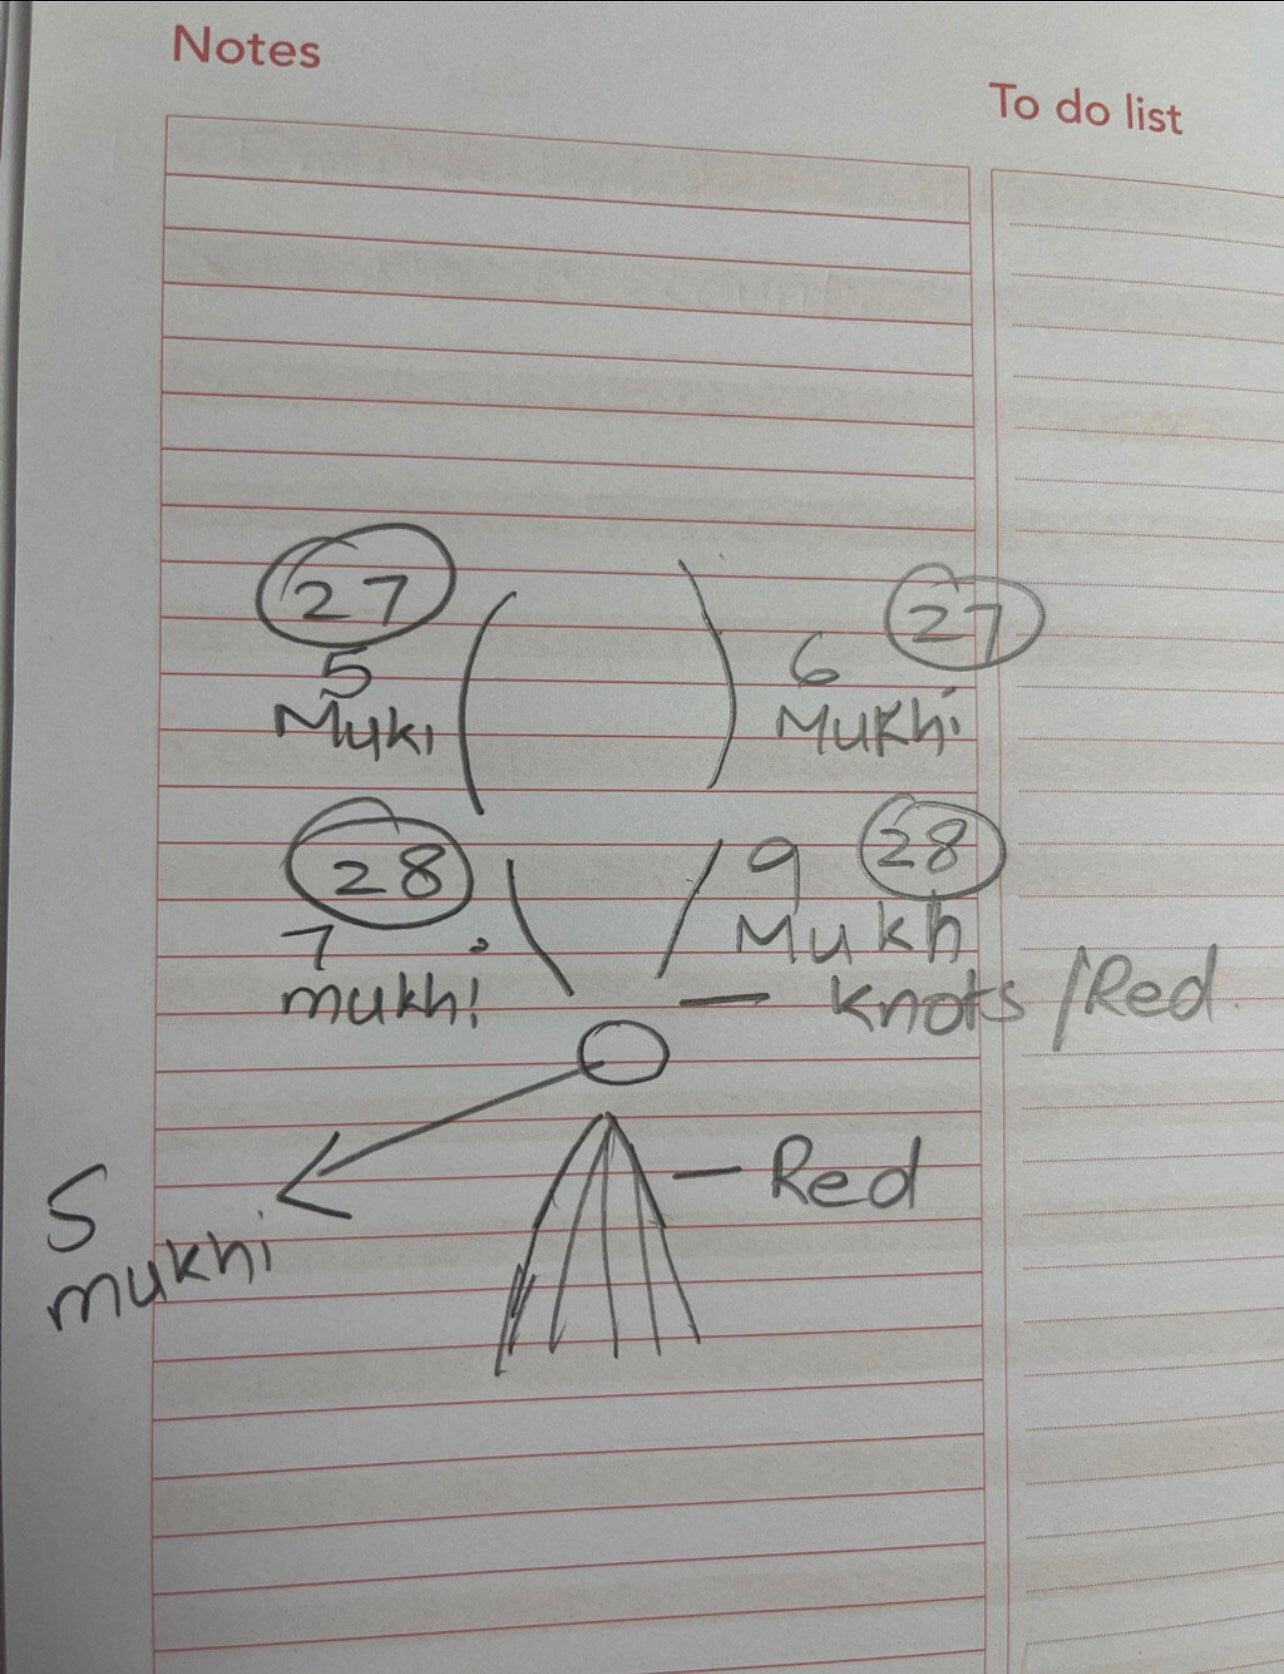 Notes
To do list
27
27
5
Muki
6
Mukhi
28
9
28
7
mukhi
Mukh
knots/Red.
5
mukhi
Red